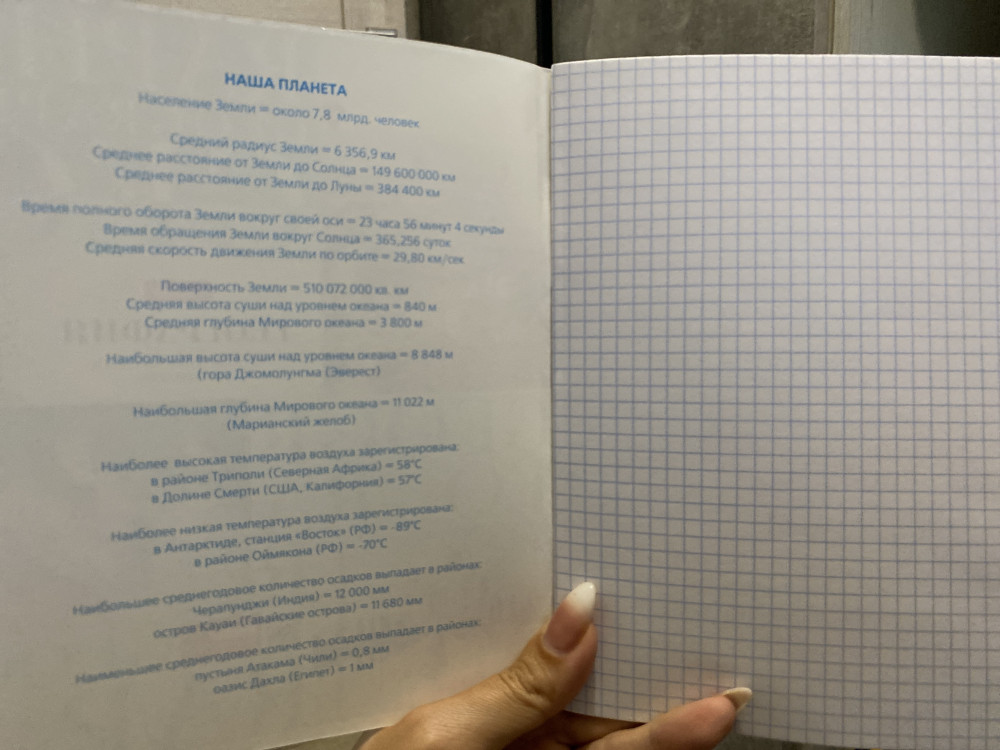 НАША ПЛАНЕТА
Население Земли = около 7,8 млрд. человек
Средний радиус Земли = 6 356,9 км
Среднее расстояние от Земли до Солнца = 149 600 000 км
Среднее расстояние от Земли до Луны = 384 400 км
Время полного оборота Земли вокруг своей оси = 23 часа 56 минут 4 секунды
Время обращения Земли вокруг Солнца = 365,256 суток
Средняя скорость движения Земли по орбите = 29,80 км/сек
Поверхность Земли = 510 072 000 кв. км
Средняя высота суши над уровнем океана = 840 м
Средняя глубина Мирового океана = 3 800 м
Наибольшая высота суши над уровнем океана = 8 848 м
(гора Джомолунгма (Эверест)
Наибольшая глубина Мирового океана = 11 022 м
(Марианский желоб)
Наиболее высокая температура воздуха зарегистрирована:
в районе Триполи (Северная Африка) = 58°С
в Долине Смерти (США, Калифорния) = 57°С
Наиболее низкая температура воздуха зарегистрирована:
в Антарктиде, станция «Восток» (РФ) = -89°С
в районе Оймякона (РФ) = -70°С
Наибольшее среднегодовое количество осадков выпадает в районах:
Черапунджи (Индия) = 12 000 мм
остров Кауаи (Гавайские острова) = 11 680 мм
Наименьшее среднегодовое количество осадков выпадает в районах:
пустыня Атакама (Чили) = 0,8 мм
оазис Дахла (Египет) = 1 мм